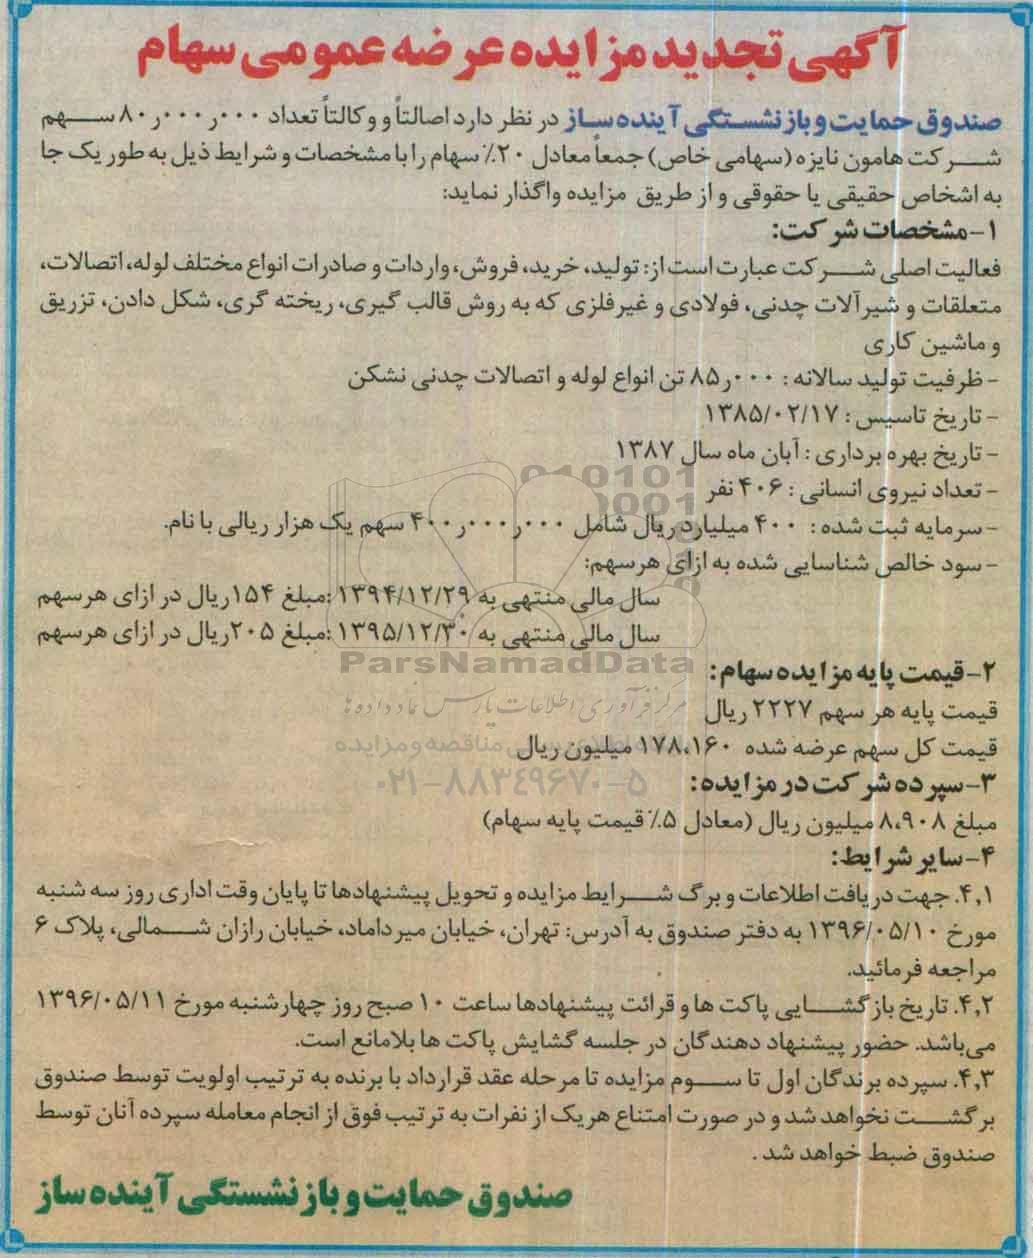 آگهی تجدید مزایده عرضه عمومی سهام
صندوق حمایت و بازنشستگی آینده ساز در نظر دارد اصالتاً و وکالتاً تعداد ۸۰ر۰۰۰ر۰۰۰ سهم
شرکت هامون نایزه (سهامی خاص) جمعاً معادل ۲۰٪ سهام را با مشخصات و شرایط ذیل به طور یک جا
به اشخاص حقیقی یا حقوقی و از طریق مزایده واگذار نماید:
۱-مشخصات شرکت:
فعالیت اصلی شرکت عبارت است از: تولید، خرید، فروش، واردات و صادرات انواع مختلف لوله، اتصالات،
متعلقات و شیرآلات چدنی، فولادی و غیرفلزی که به روش قالب گیری، ریخته گری، شکل دادن، تزریق
و ماشین کاری
- ظرفیت تولید سالانه : ۸۵ر۰۰۰ تن انواع لوله و اتصالات چدنی نشکن
- تاریخ تاسیس : ۱۳۸۵/۰۲/۱۷
- تاریخ بهره برداری : آبان ماه سال ۱۳۸۷
- تعداد نیروی انسانی : ۴۰۶ نفر
- سرمایه ثبت شده : ۴۰۰ میلیارد ریال شامل ۴۰۰ر۰۰۰ر۰۰۰ سهم یک هزار ریالی با نام.
- سود خالص شناسایی شده به ازای هرسهم:
سال مالی منتهی به ۱۳۹۴/۱۲/۲۹ :مبلغ ۱۵۴ ریال در ازای هرسهم
سال مالی منتهی به ۱۳۹۵/۱۲/۳۰ :مبلغ ۲۰۵ ریال در ازای هرسهم
ParsNamadData
۲-قیمت پایه مزایده سهام:
مرکز فرآوری اطلاعات پارس نماد داده ها
قیمت پایه هر سهم ۲۲۲۷ ریال
قیمت کل سهم عرضه شده ۱۷۸،۱۶۰ میلیون ریال
مناقصه و مزایده
۰۲۱-۸۸۳۴۹۶۷۰-۵
۳-سپرده شرکت در مزایده:
مبلغ ۸،۹۰۸ میلیون ریال (معادل ۵٪ قیمت پایه سهام)
۴-سایر شرایط:
۴,۱. جهت دریافت اطلاعات و برگ شرایط مزایده و تحویل پیشنهادها تا پایان وقت اداری روز سه شنبه
مورخ ۱۳۹۶/۰۵/۱۰ به دفتر صندوق به آدرس: تهران، خیابان میرداماد، خیابان رازان شمالی، پلاک ۶
مراجعه فرمائید.
۴,۲. تاریخ بازگشایی پاکت ها و قرائت پیشنهادها ساعت ۱۰ صبح روز چهارشنبه مورخ ۱۳۹۶/۰۵/۱۱
می‌باشد. حضور پیشنهاد دهندگان در جلسه گشایش پاکت ها بلامانع است.
۴,۳. سپرده برندگان اول تا سوم مزایده تا مرحله عقد قرارداد با برنده به ترتیب اولویت توسط صندوق
برگشت نخواهد شد و در صورت امتناع هریک از نفرات به ترتیب فوق از انجام معامله سپرده آنان توسط
صندوق ضبط خواهد شد .
صندوق حمایت و بازنشستگی آینده ساز